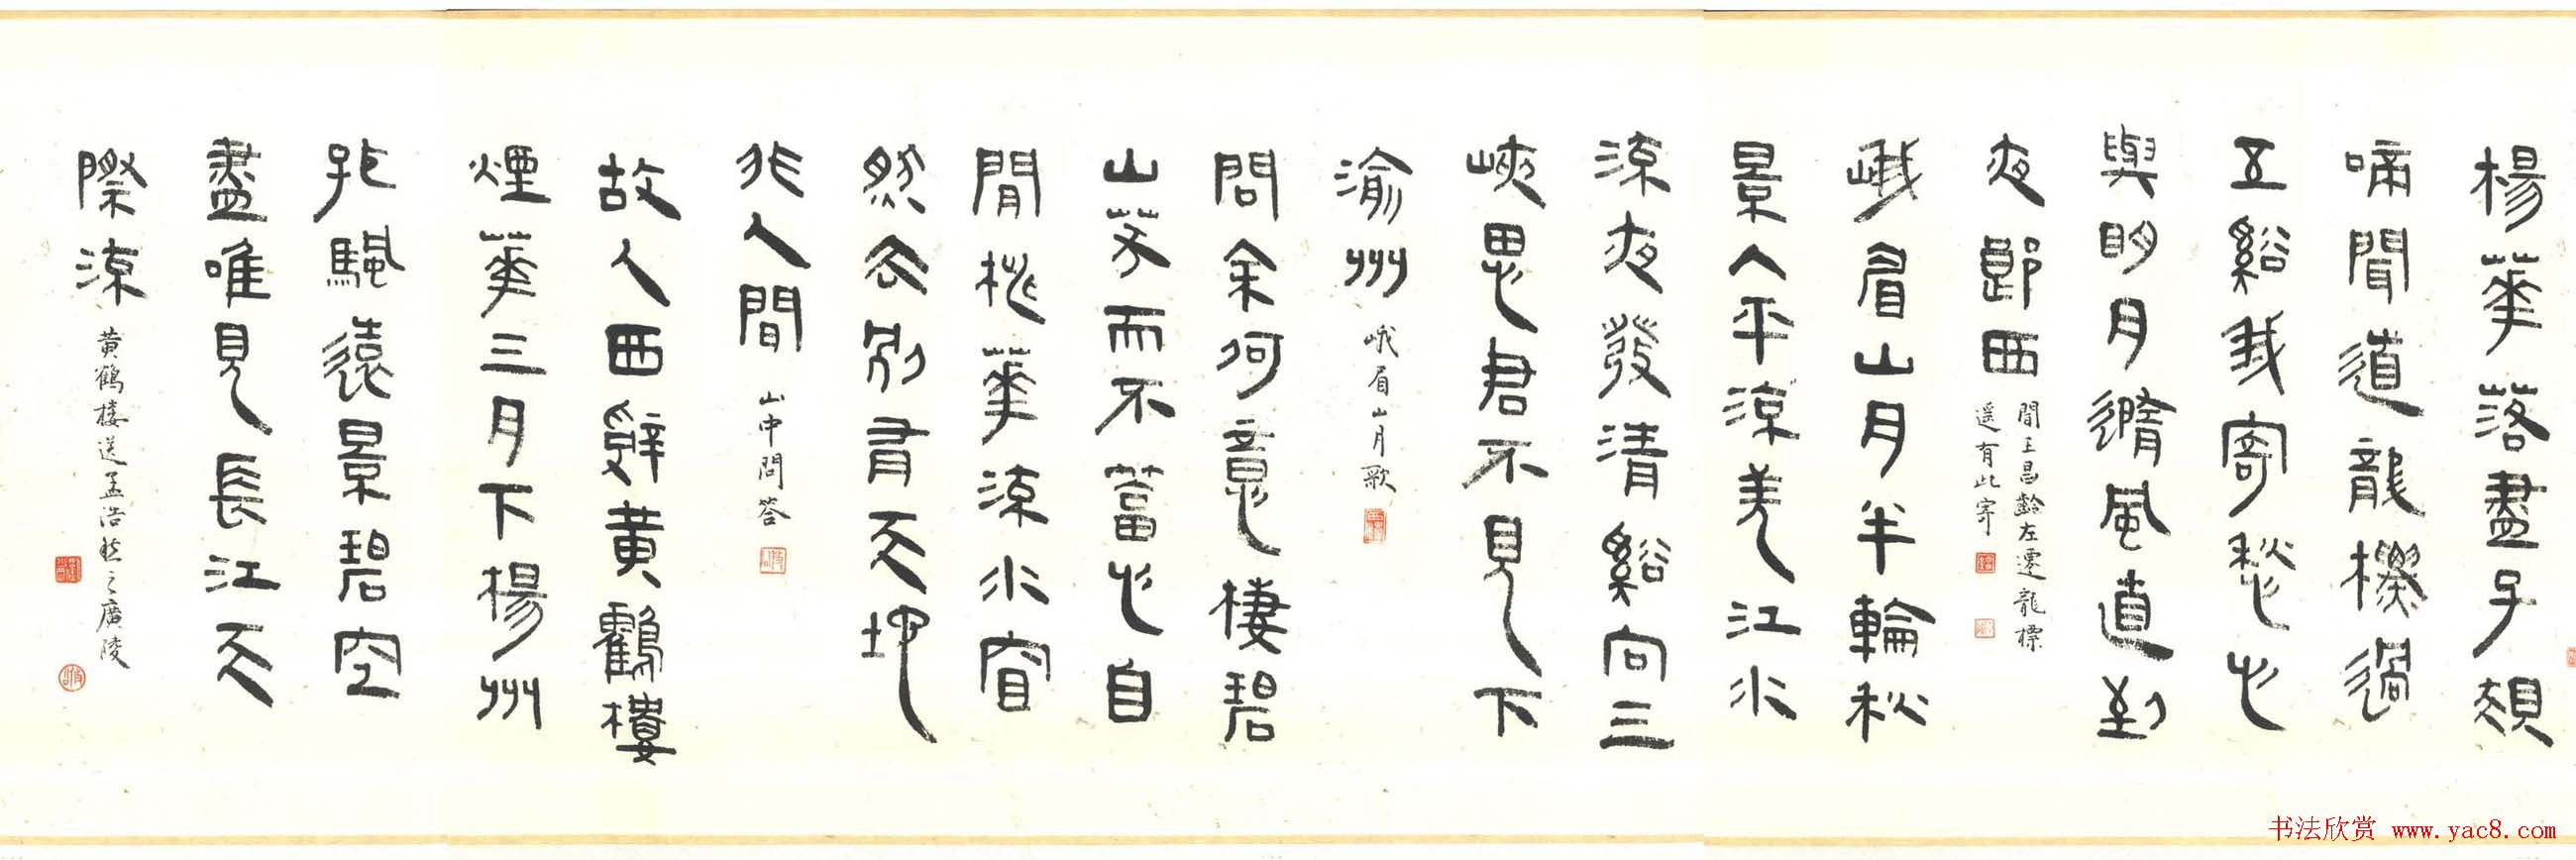 楊華落盡子規
啼聞道龍標過
五谿我寄愁心
與明月隨風直到
夜郎西
聞王昌齡左遷龍標
遥有此寄
峨眉山月半輪秋
景入平流羌江水
流夜發清谿向三
峽思君不見下
渝州
峨眉山月歌
問余何意棲碧
山笑而不答心自
閒桃華流水窅
然去別有天地
非人間
山中問答
故人西辭黃鶴樓
煙華三月下楊州
孤颿遠景碧空
盡唯見長江天
際流
黄鶴楼送孟浩然之廣陵
书法欣赏 www.yac8.com